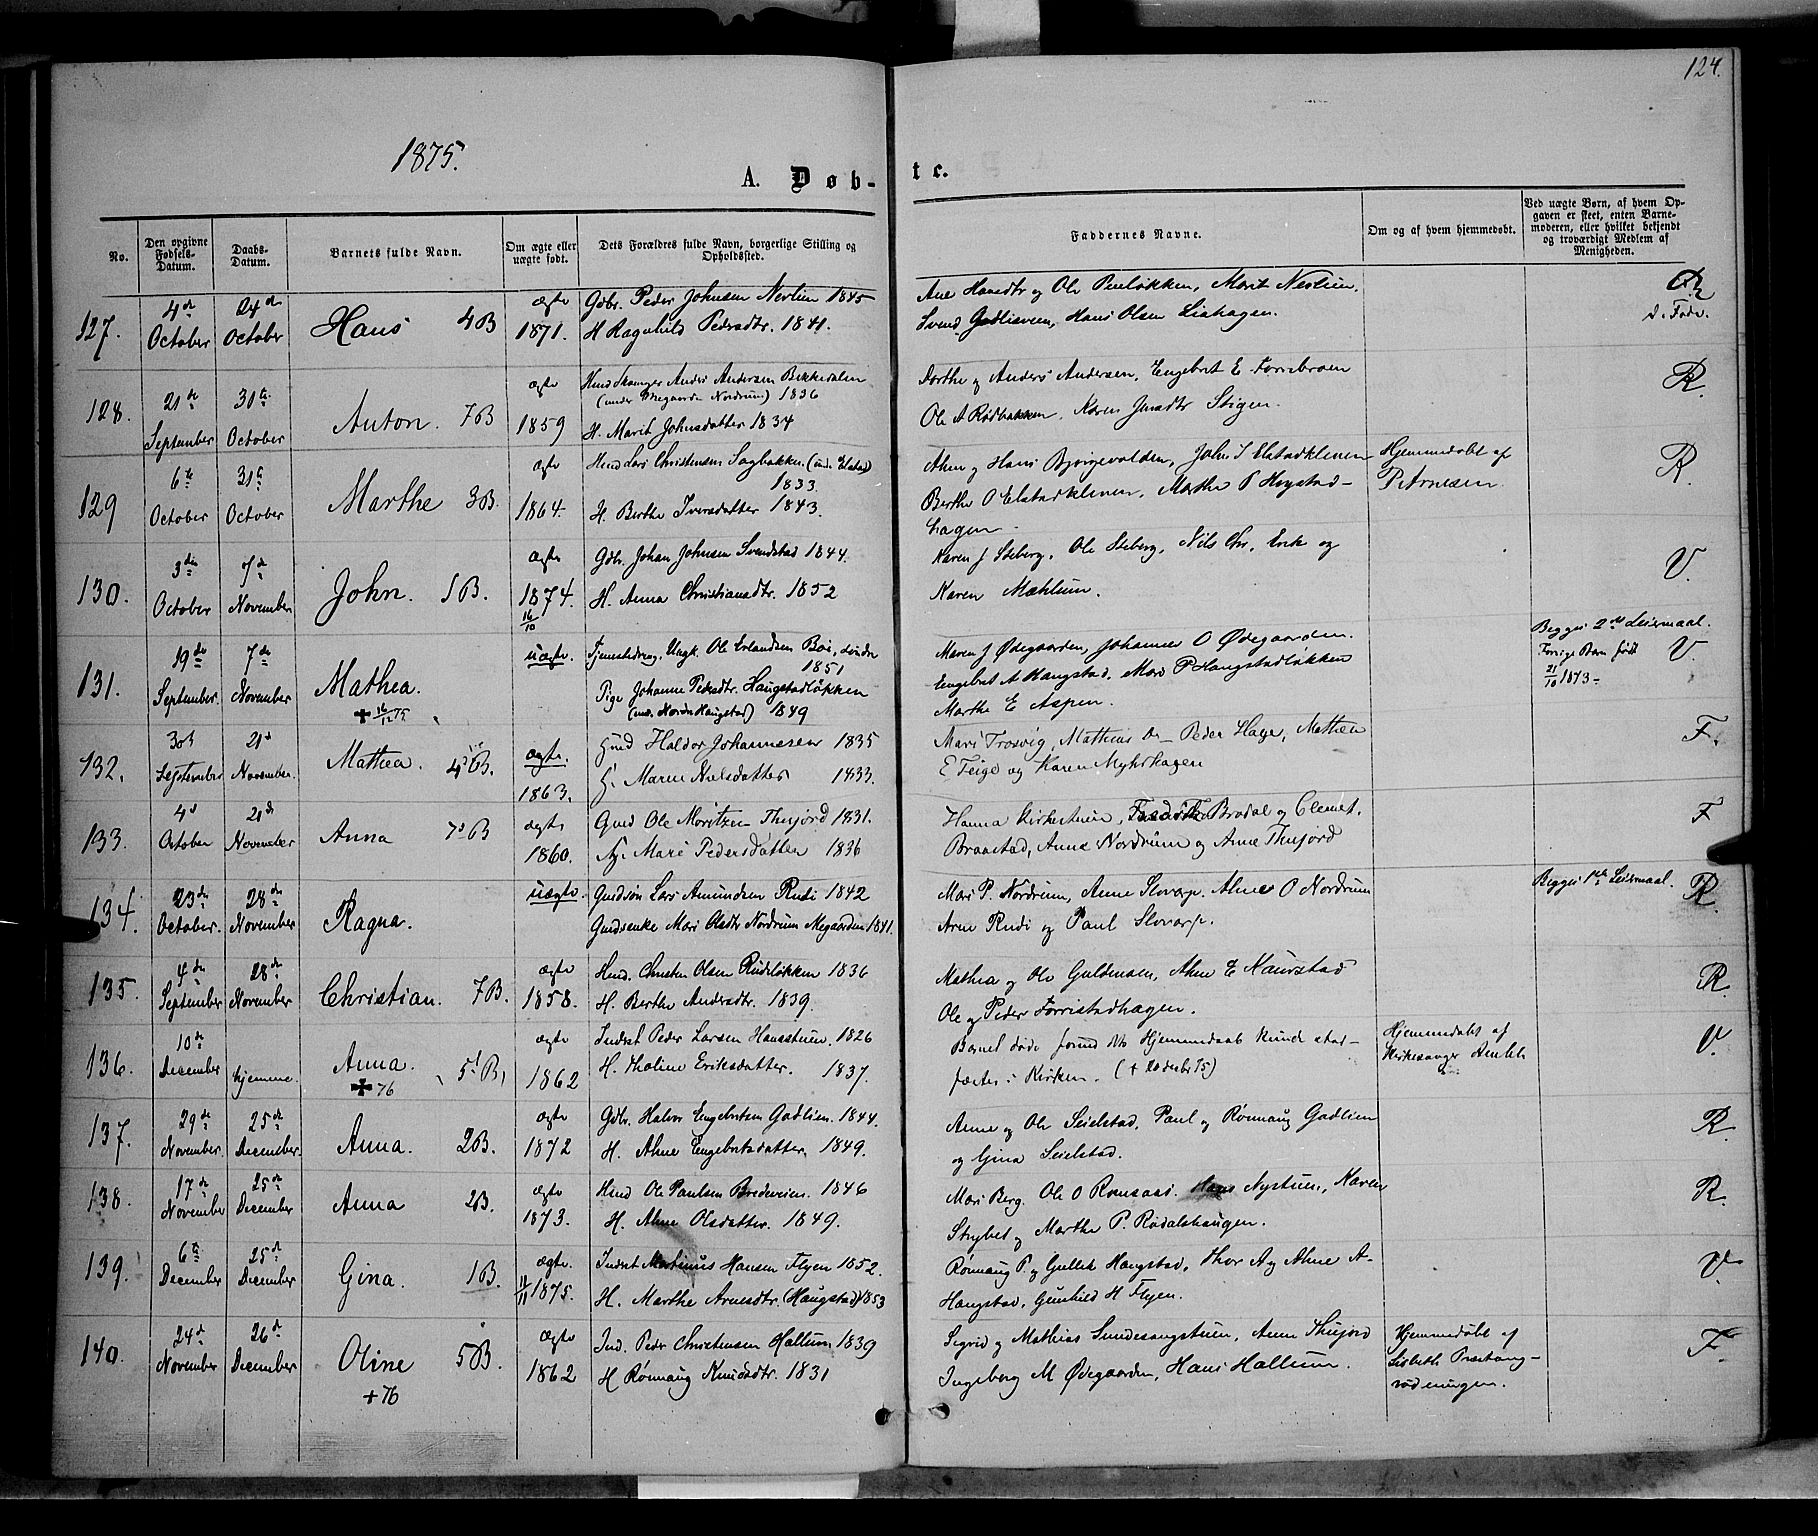 124.
1875.
A. Døb-
te.
No.
Den opgivne Fødsels-Datum.
Daabs-Datum.
Barnets fulde Navn.
Om ægte eller uægte født.
Dets Forældres fulde Navn, borgerlige Stilling og Opholdssted.
Faddernes Navne.
Om og af hvem hjemmedøbt.
Ved uægte Børn, af hvem Opgaven er skeet, enten Barnemoderen, eller hvilket bekjendt og troværdigt Medlem af Menigheden.
127. 4de October 24de October Hans 4B ægte 1871.
Gdbr. Peder Johnsen Nerlien 1845
H. Ragnhild Pedersdtr. 1841.
Ane Hansdtr og Ole Penløkken, Marit Nerlien,
Svend Gadlisveen, Hans Olsen Liahagen.
128. 21de September 31te October Anton. 7B ægte 1859
Hmd Skomager Anders Andersen Bekkedalen
(under Megaarden Nordrum) 1836
H. Marit Johnsdatter 1834
Dorthe og Anders Andersen, Engebret E
Ole A Rødbakken, Karen Jensdtr Stigen.
R.
129 6te October 31te October Marthe 3B. ægte 1864.
Hmd Lars Christensen Sagbakken (und. Elstad)
1833
H. Berthe Iversdatter 1843.
Ahne og Hans Bjørgevolden, John I Elstadkleven
Berthe O Elstadkleven, Marthe P Hrystad-
hagen
Hjemmedøbt af
P. Arnesen.
R.
130. 3die October 7de November John. 1B. ægte 1874. 16/10
Gdbr. Johan Johnsen Svendstad 1844.
H. Anna Christiansdtr. 1852
Karen J Steberg, Ole Steberg, Nils Chr, Erik og
Karen Mæhlum.
V.
131. 19de September. 7de November Mathea. + 16/12 75 uægte.
Tjenestedreng, Ungk. Ole Erlandsen Bøe, søndre
1851
Pige Johanne Pedersdtr. Haugstadløkken
(und. Nordre Haugstad) 1849
Maren J Ødegaarden, Johannes O Ødegaarden.
Engebret A Haugstad, Mari P Haugstadløkken
Marthe E Aspen.
Begges 2det Leiermaal.
Forrige Barn født
21/10 1873-
V.
132. 30te September 21de November. Mathea. 4de B. ægte. 1863.
Hmd Haldor Johannesen 1835
H. Maren Nielsdatter 1833.
Mari Trosvig, Mathias Do- Peder Hage, Mathea
E Feige og Karen Myhrhagen
F.
133. 4de October 21de November Anna 7de B ægte 1860.
Gmd Ole Moritzen Thujord 1831.
H. Mari Pedersdatter 1836
Hanna Kirkestuen, Brodal og Clemet.
Braastad, Anne Nordrum og Arne Thujord
F
134. 23de October. 28de November Ragna. uægte.
Gmdsøn Lars Amundsen Rudi 1842
Gmdsenke Mari Olsdtr Nordrum Megaarden 1841.
Mari P. Nordrum, Anne Slovarp. Ahne O Nordrum
Arne Rudi og Paul Slovarp.
Begges 1ste Leiermaal.
R.
135. 4de September 28de November Christian. 7B. ægte 1858.
Hmd. Christen Olsen Rudiløkken 1836
H. Berthe Andersdtr. 1839.
Mathea og Ole Guldmoen, Ahne E Naurstad
Ole og Peder Forristadhagen.
R.
136. 10de December hjemme. Anna. + 76 5te B. ægte 1862
Inderst Peder Larsen Hansstuen. 1826
H. Tholine Eriksdatter. 1837.
Barnet døde førend dets Hjemmedaab kunde stad-
fæstes i Kirken.
Hjemmedøbt af
Kirkesanger
V.
137. 29de November. 25de December. Anna. 2B. ægte 1872
Gdbr. Halvor Engebretsen Gadlien. 1844.
H. Ahne Engebretsdatter. 1849.
Anne og Ole Seielstad, Paul og Rønnaug Gadlien
og Gina Seielstad.
R.
138. 17de November 25de December Anna 2B. ægte 1873.
Hmd Ole Paulsen Bredeveien. 1846
H. Ahne Olsdatter. 1849.
Mari Berg. Ole O Romsaas. Hans Nystuen, Karen
Strybet og Marthe P. Rødalshaugen.
R.
139. 6te December 25de December Gina. 1B. ægte. 11/11 1875.
Inderst Martinus Hansen Flyen 1852.
H. Marthe Arnesdtr. (Haugstad) 1853
Rønnaug P. og Gullik Haugstad, Thor A og Ahne A-
Haugstad, Gunhild H Flyen.
V
140. 24de November 26de December Oline + 76 5B. ægte 1862
Ind. Peder Christensen Hallum 1839
H Rønnaug Knudsdtr. 1831
Sigrid og Mathias Sundesangstuen, Anne Thujord
Ingeborg M Ødegaarden, Hans Hallum.
Hjemmedøbt af
Lisbeth Præstang-
rødeningen.
F.